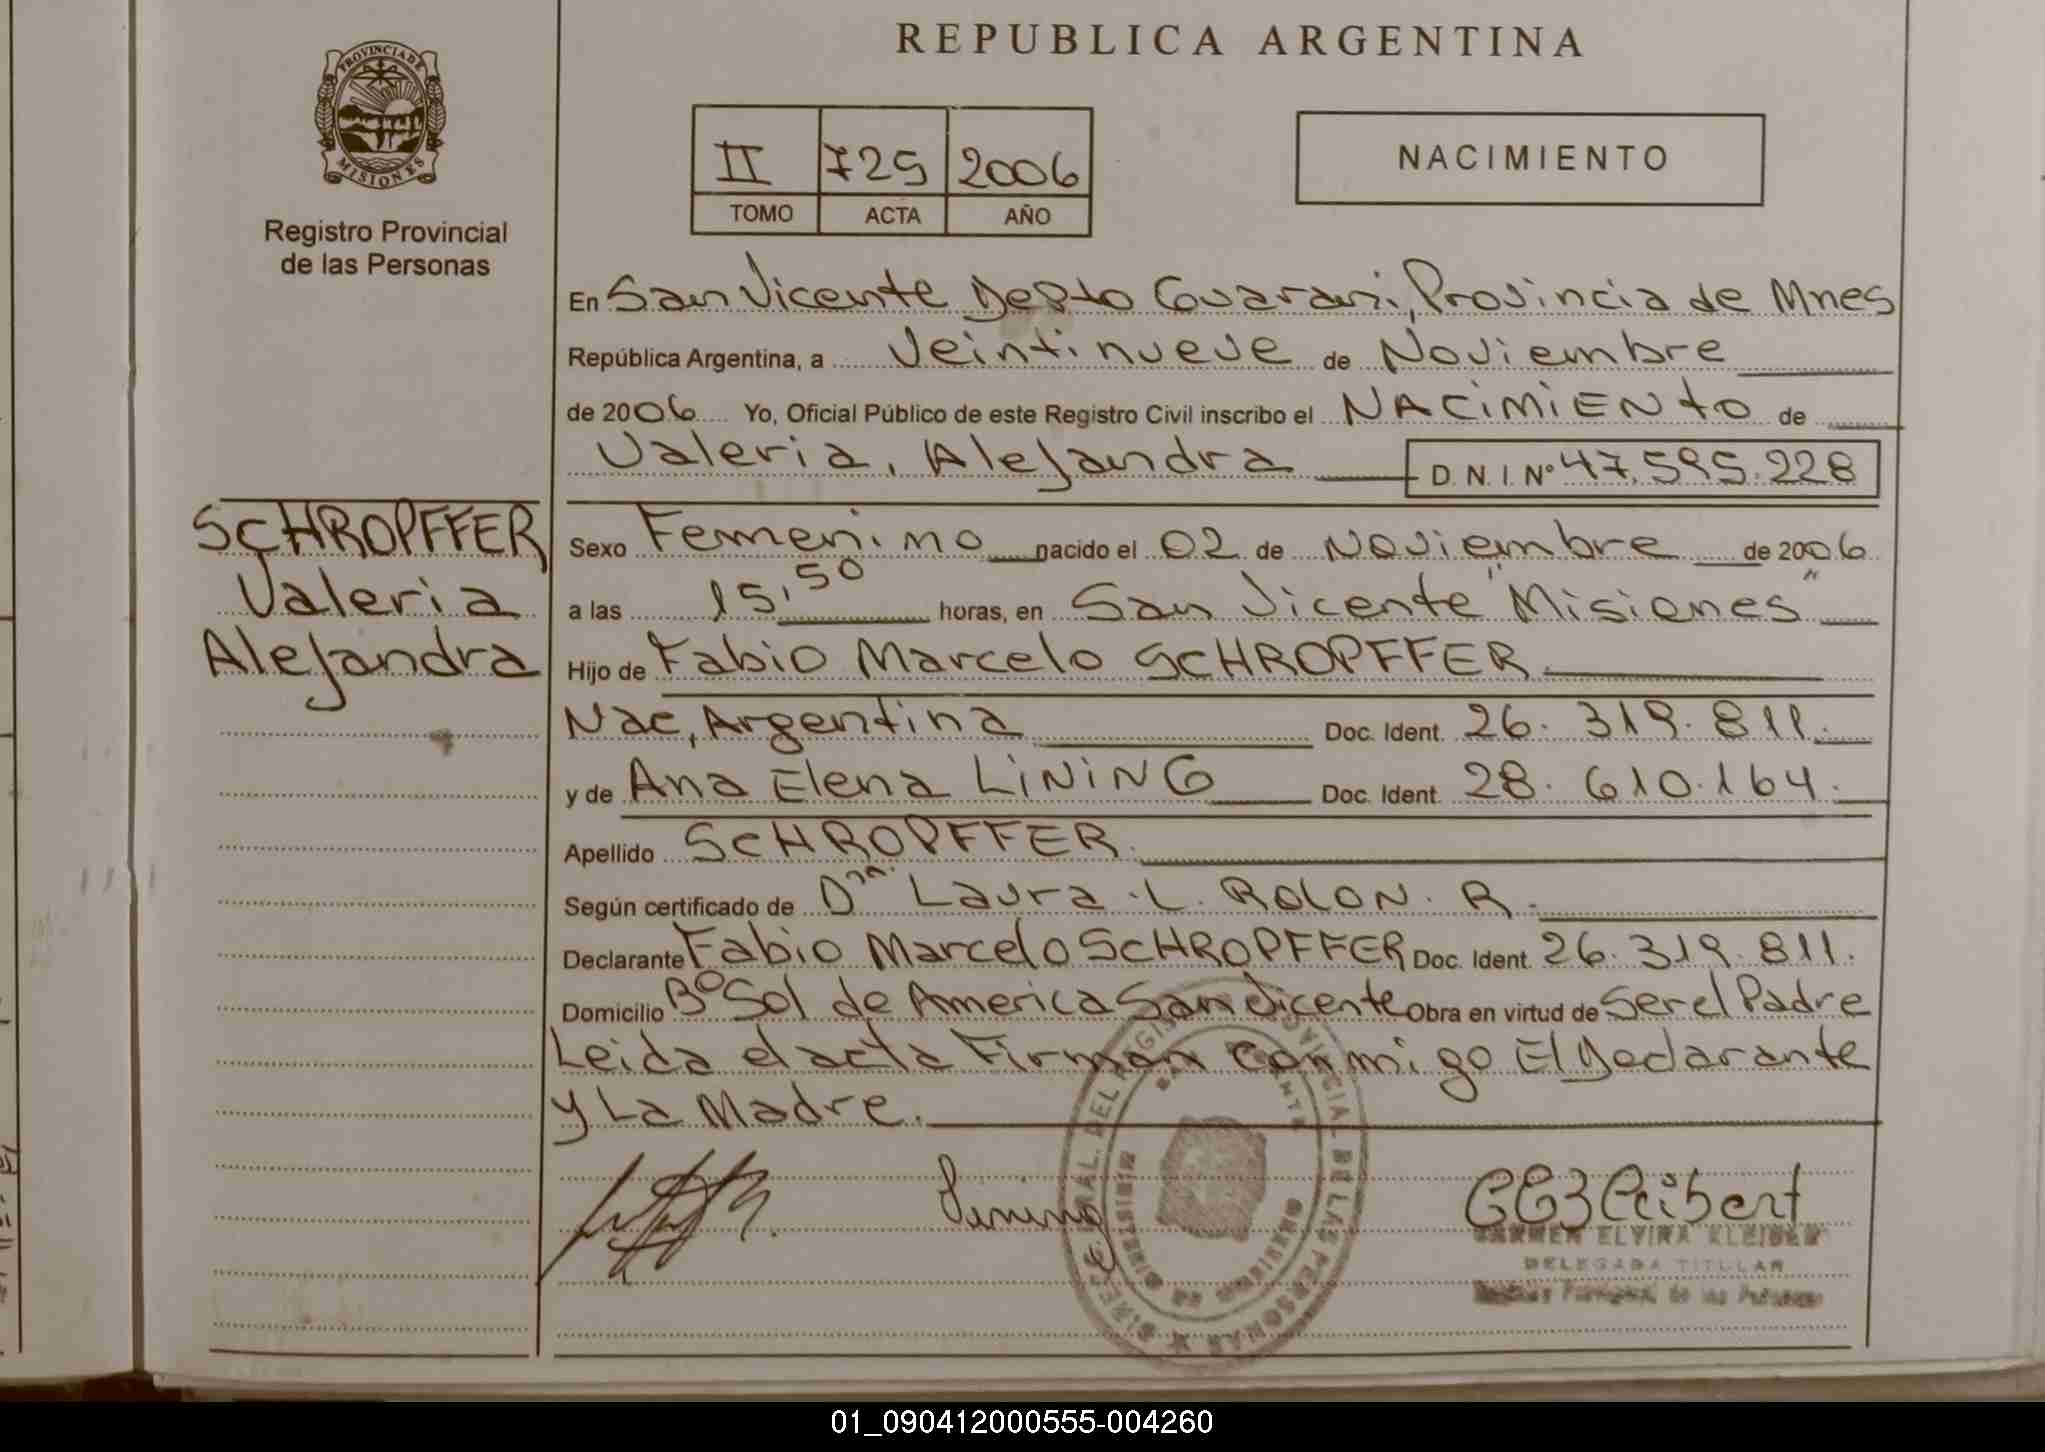 REPUBLICA ARGENTINA
PROVINCIA DE
MISIONES
Registro Provincial
de las Personas
II 725 2006
TOMO ACTA AÑO
NACIMIENTO
En San Vicente Depto Guarani, Provincia de Mnes
República Argentina, a Veintinueve de Noviembre
de 2006 Yo, Oficial Público de este Registro Civil inscribo el NACIMIENTO de
Valeria, Alejandra D. N. I. Nº 47.595.228
SCHROPFFER
Valeria
Alejandra
Sexo Femenino nacido el 02 de Noviembre de 2006
a las 15,50 horas, en San Vicente "Misiones"
Hijo de Fabio Marcelo SCHROPFFER
Nac, Argentina Doc. Ident. 26.319.811.
y de Ana Elena LiNiNG Doc. Ident. 28.610.164.
Apellido SCHROPFFER.
Según certificado de Dra. Laura. L. ROLON. R.
Declarante Fabio Marcelo SCHROPFFER Doc. Ident. 26.319.811.
Domicilio Bº Sol de America San Vicente Obra en virtud de Ser el Padre
Leida el acta Firman conmigo El Declarante
y La Madre.
Lining
CARMEN ELVIRA KLEIBER
DELEGADA TITULAR
Registro Provincial de las Personas
01_090412000555-004260